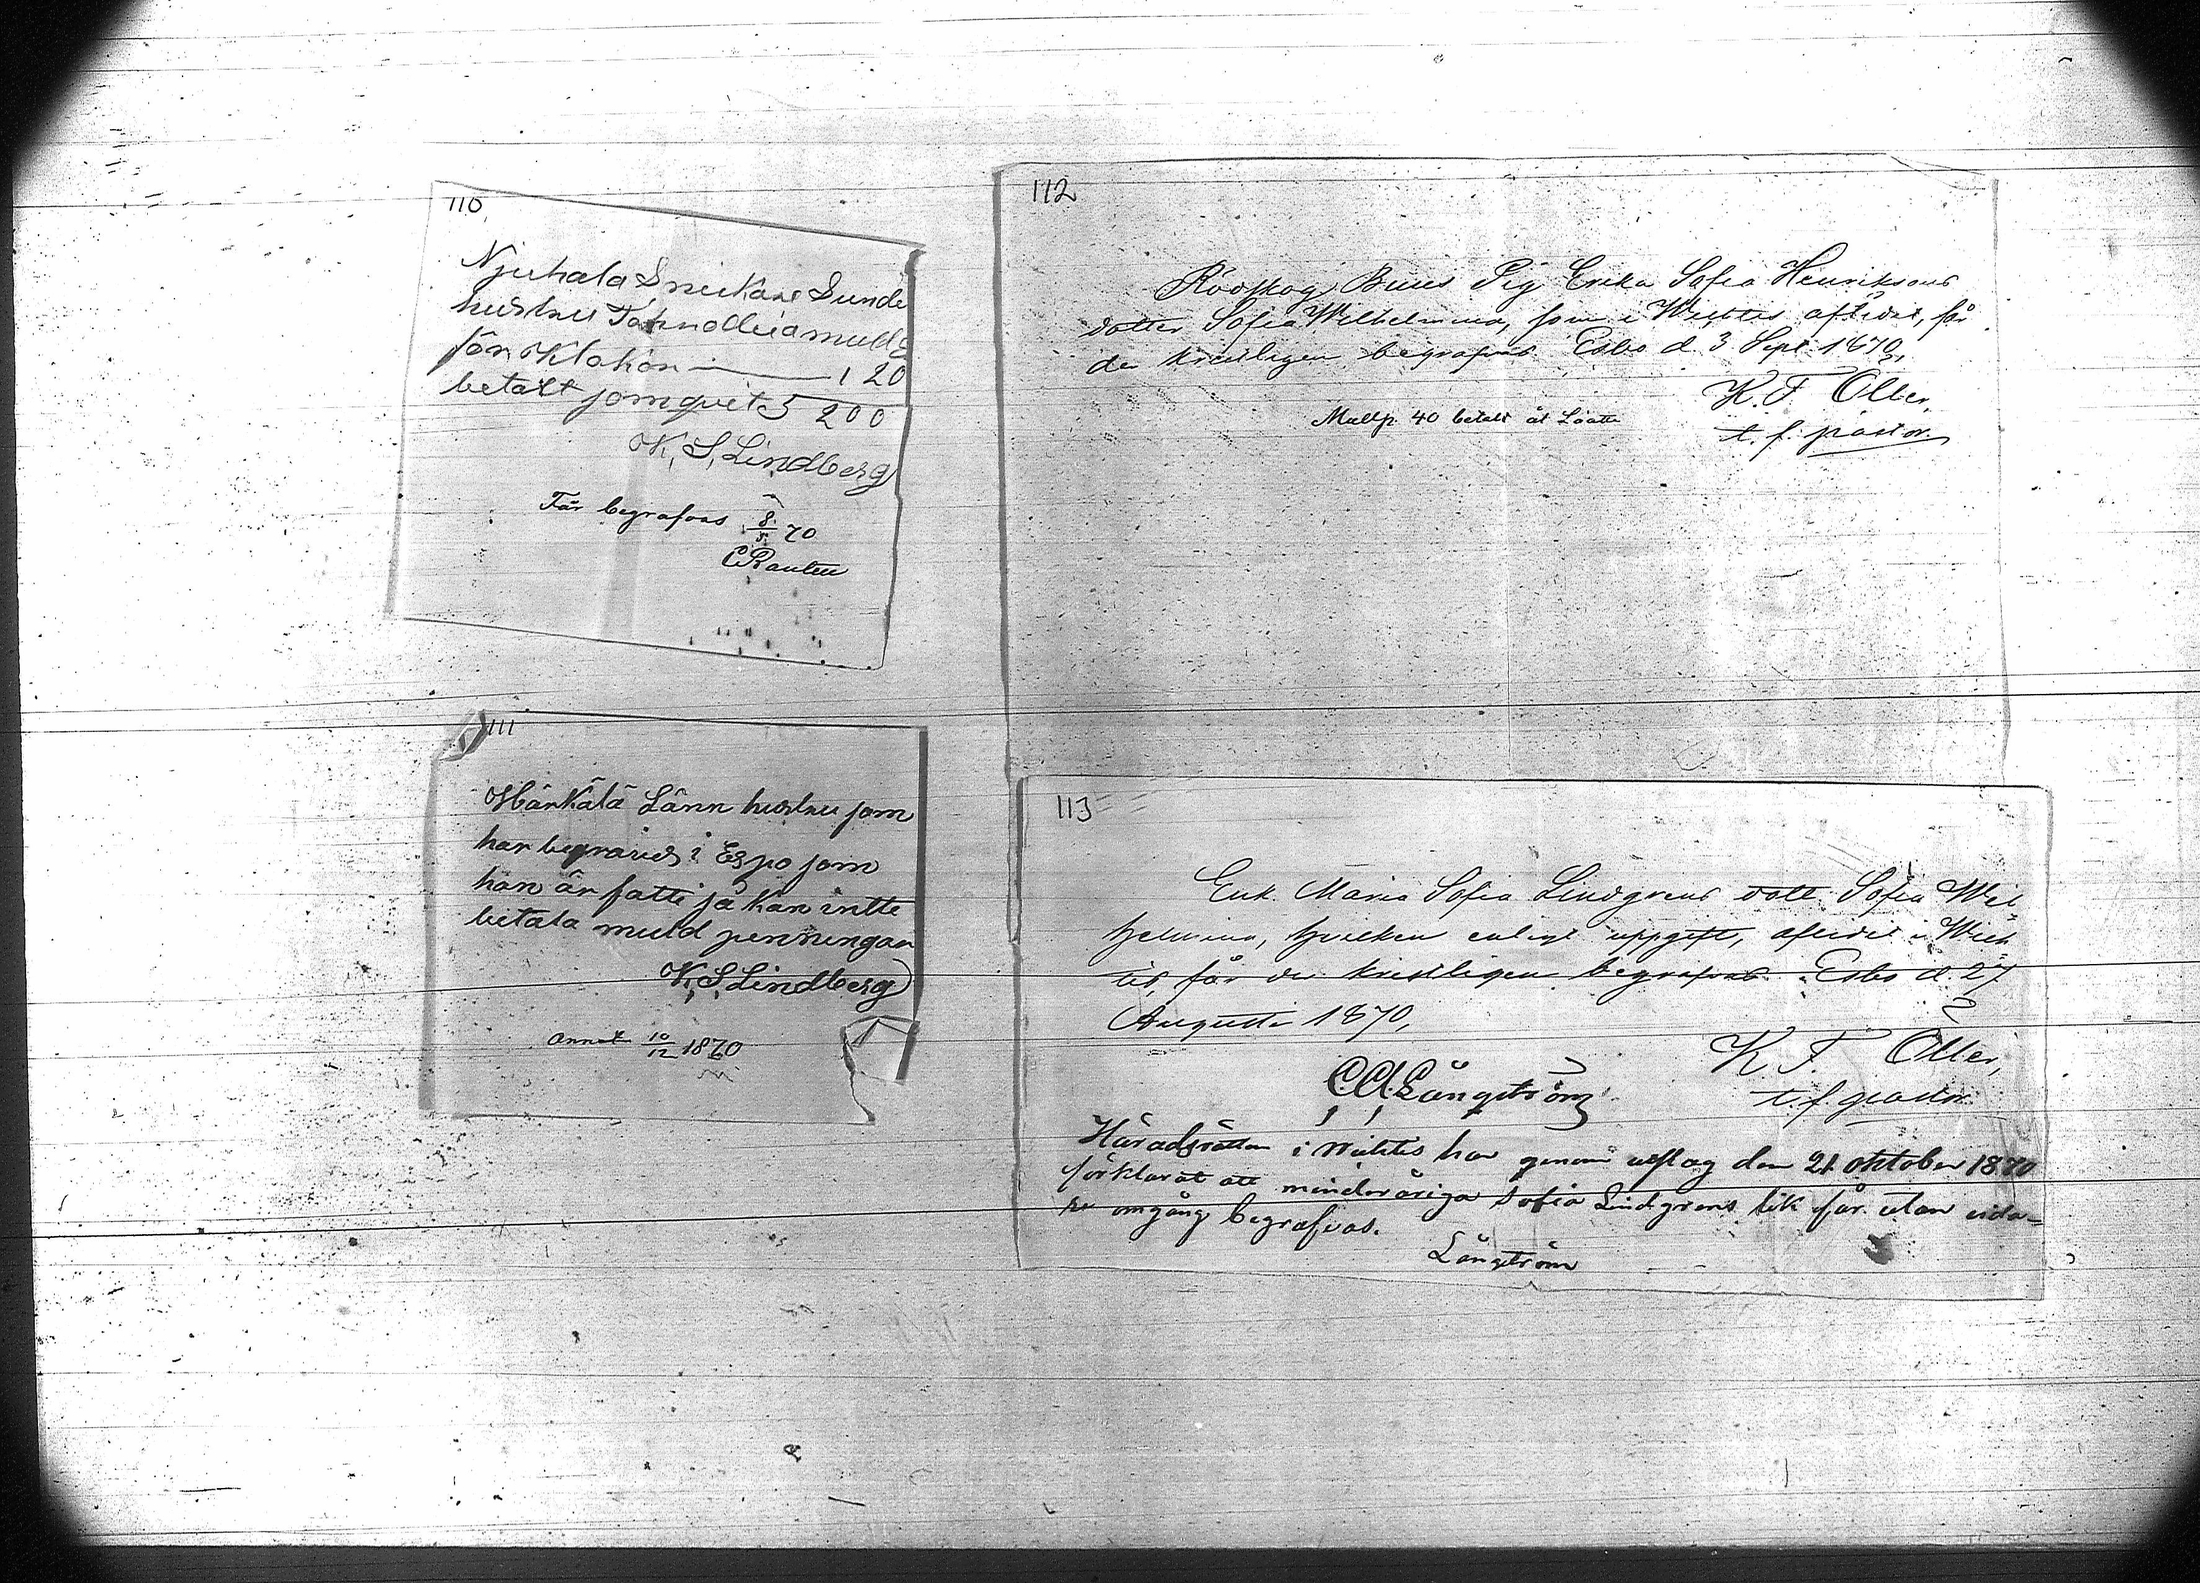 110
Njuhala Snickare Sunde
hustru
för Klakan — 1 20
betalt som gvit 5 200
K, S, Lindberg
Får begrafvas 8/5 70
C Rauten
111
Härkälä Länn hustru som
har begravids i Espo som
han är fatti så kan intte
betala muld penningar
K, S Lindberg
annat 10/12 1870
112
Rödskog Pig Erika Sofia Henriksons
dotter Sofia Wilhelmina, som i Wichtis aflidit, får
der kristligen begrafvas. Esbo d 3 Sept 1870,
K. F. Öller,
t. f. pastor.
Mullp. 40 betalt åt
113
Enk. Maria Sofia Lindgrens dott. Sofia Wil
helmina, hvilken enligt uppgift, aflidit i Wich
tis, får der kristligen begrafvas. Esbo d. 27
Augusti 1870,
K. F. Öller,
t. f. pastor
C. A. Långström
Häradsrätten i Wichtis har genom utslag den 21 oktober 1870
förklarat att minderåriga Sofia Lindgrens lik får utan vida=
re omgång begrafvas.
Långström